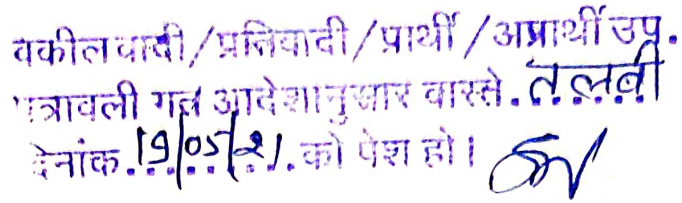 वकील वादी/प्रतिवादी/प्रार्थी/अप्रार्थी उप.
पत्रावली गत आदेशानुसार वास्ते. तलबी
देनांक. 19/05/21. को पेश हो।